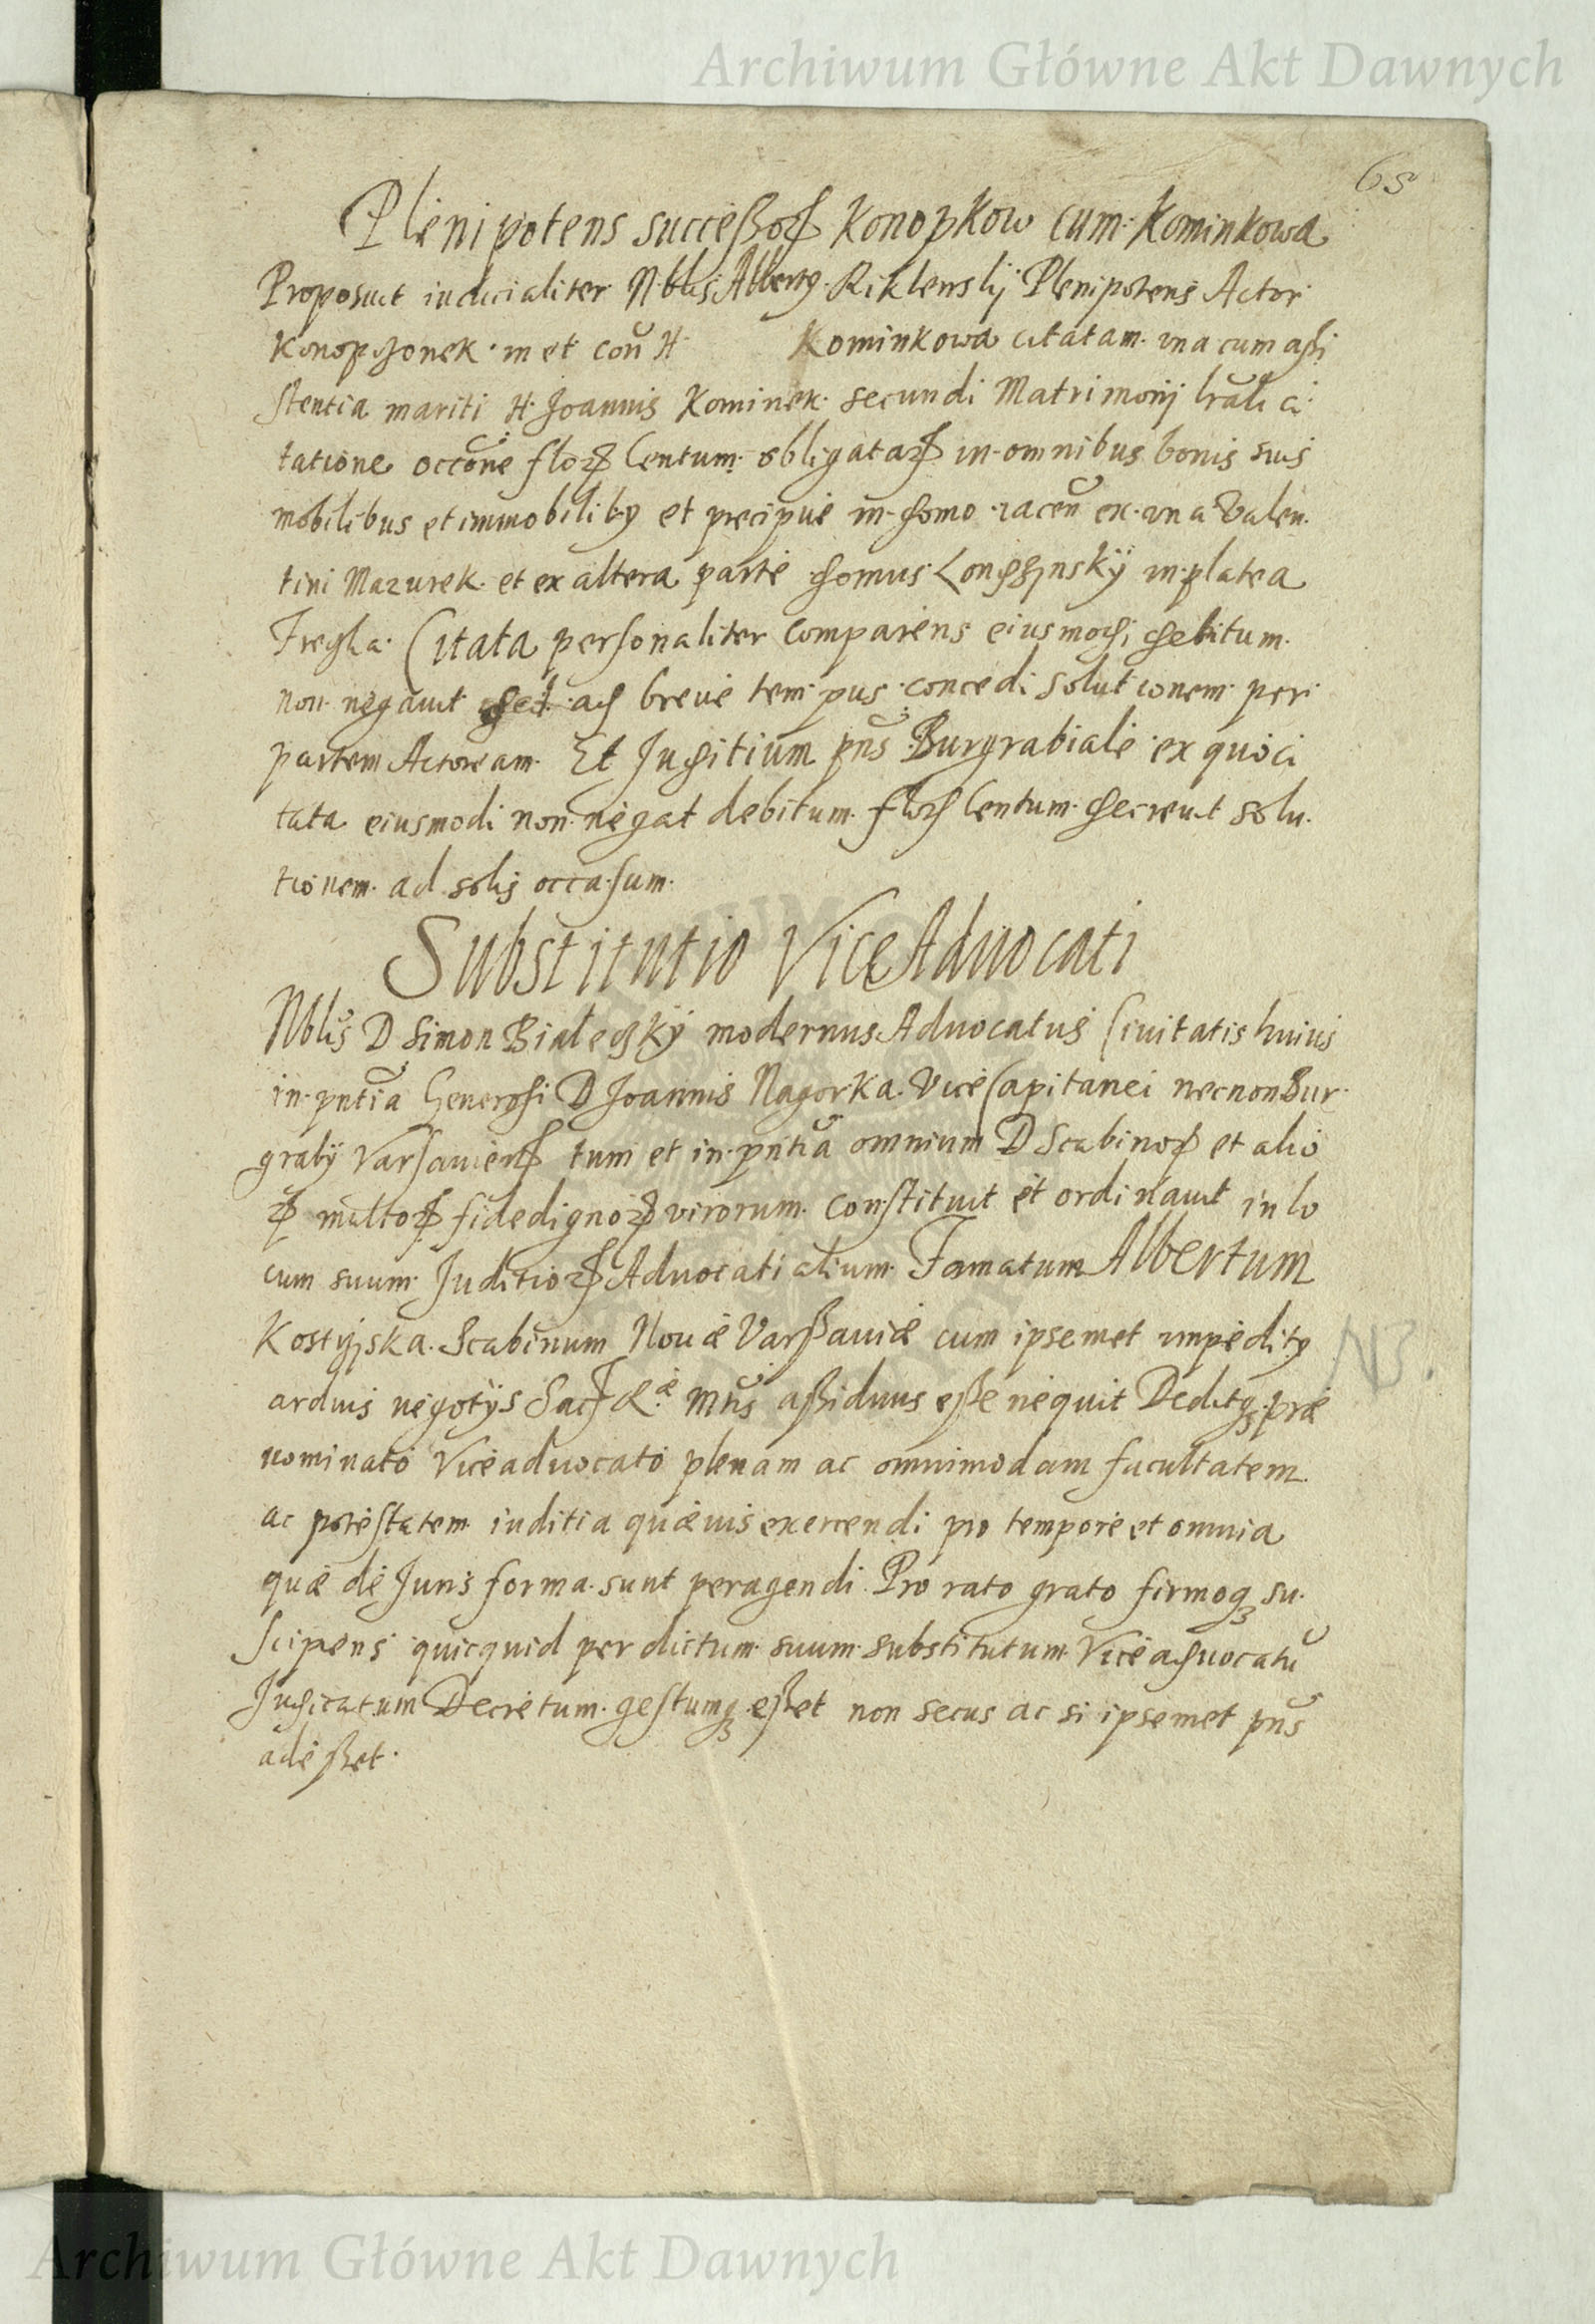 Archiwum Główne Akt Dawnych
65
Plenipotens succeßorꝝ Konopkow cum Kominkowa
Proposuit iudicialiter Nblis Albertꝯ Plenipotens Actor
Konopczonek in et con H Kominkowa citatam una cum aßi
stentia mariti H Joannis Kominek secundi Matrimonij lrali ci
tatione occone floꝝ Centum obligataꝝ in omnibus bonis suis
mobilibus et immobilibꝯ et precipue in domo iacen ex una Valen
tini Mazurek et ex altera parte domus in platea
Freta Citata personaliter comparens eiusmodi debitum
non negauit sed ad breue tempus concedi solutionem per
partem Actoream Et Juditium pns Burgrabiale ex quo ci
tata eiusmodi non negat debitum floꝝ Centum decreuit solu
tionem ad solis occasum
Substitutio ViceAduocati
Nblis D Simon Białedzky modernus Aduocatus Ciuitatis huius
in pntia Generosi D Joannis Nagorka ViceCapitanei necnon Bur
grabÿ Varsauienꝝ tum et in pntia omnium D Scabinoꝝ et alio
ꝝ multoꝝ fidedignoꝝ virorum constituit et ordinauit in lo
cum suum Juditioꝝ Aduocatialium Famatum Albertum
Kostyjska Scabinum Nouæ Varßauiæ cum ipsemet impeditꝯ
arduis negotÿs Sacꝝ Ræ Mtis aßiduus eße nequit Deditqꝫ præ
nominato Viceaduocato plenam ac omnimodam facultatem
ac potestatem iuditia quæuis exercendi pro tempore et omnia
quæ de Juris forma sunt peragendi Pro rato grato firmoqꝫ su
scipiens quicquid per dictum suum substitutum Viceaduocatū
Judicatum Decretum gestumqꝫ eßet non secus ac si ipsemet pns
adeßet
NB.
Archiwum Główne Akt Dawnych